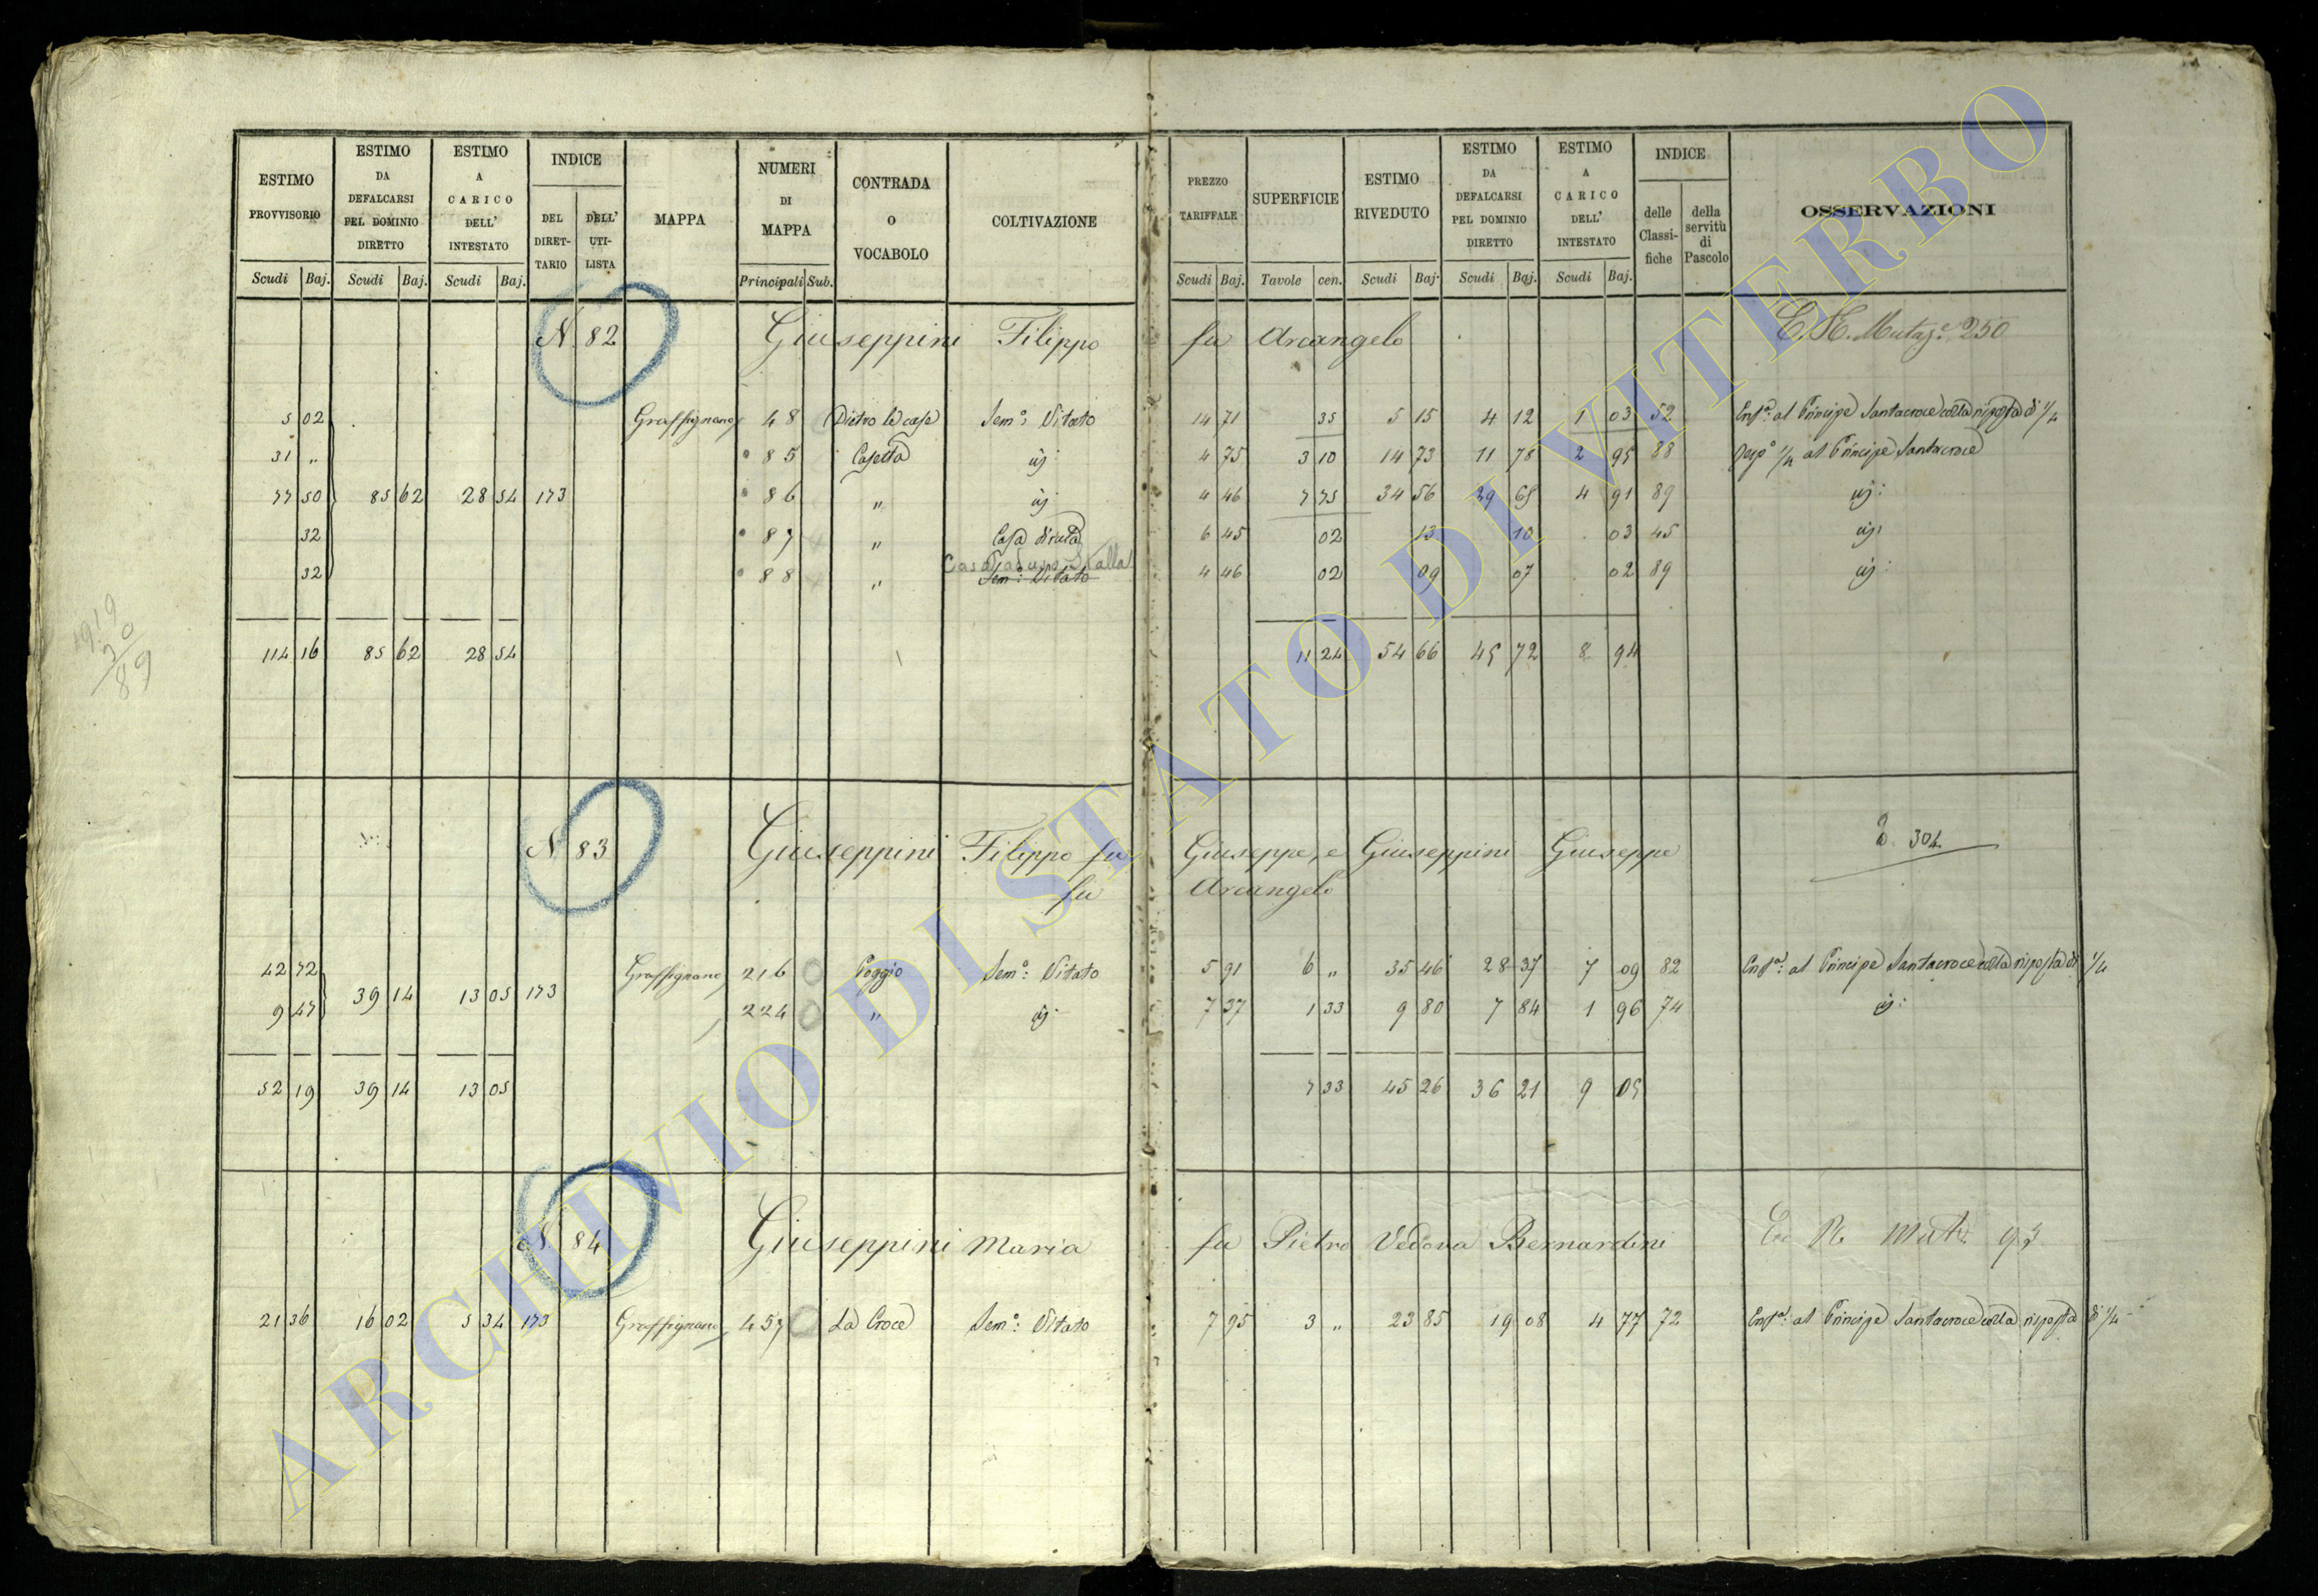 ESTIMO PROVVISORIO | ESTIMO DA DEFALCARSI PEL DOMINIO DIRETTO | ESTIMO A CARICO DELL' INTESTATO | INDICE | MAPPA | NUMERI DI MAPPA | CONTRADA O VOCABOLO | COLTIVAZIONE | PREZZO TARIFFALE | SUPERFICIE | ESTIMO RIVEDUTO | ESTIMO DA DEFALCARSI PEL DOMINIO DIRETTO | ESTIMO A CARICO DELL' INTESTATO | INDICE | OSSERVAZIONI
DEL DIRET-TARIO | DELL' UTI-LISTA | delle Classi-fiche | della servitù di Pascolo
Scudi | Baj. | Scudi | Baj. | Scudi | Baj. | Principali | Sub. | Scudi | Baj. | Tavole | cen. | Scudi | Baj. | Scudi | Baj. | Scudi | Baj.
N. 82 Giuseppini Filippo fu Arcangelo 250
5 02 Graffignano 48 Dietro le case Sem.o Vitato 14 71 35 5 15 4 12 1 03 52 al Principe Santacroce colla risposta di 1/4
31 „ 85 Casetta id 4 75 3 10 14 73 11 78 2 95 88 1/4 al Principe Santacroce
77 50 85 62 28 54 173 86 „ id 4 46 7 75 34 56 29 65 4 91 89 id:
32 87 „ Casa diruta 6 45 02 13 10 03 45 id:
32 88 „ Sem.o Vitato 4 46 02 09 07 02 89 id:
114 16 85 62 28 54 11 24 54 66 45 72 8 94
N 83 Giuseppini Filippo fu Giuseppe, e Giuseppini Giuseppe 304
fu Arcangelo
42 72 Graffignano 216 Poggio Sem.o: Vitato 5 91 6 „ 35 46 28 37 7 09 82 al Principe Santacroce colla risposta di 1/4
39 14 13 05 173
9 47 224 „ id 7 37 1 33 9 80 7 84 1 96 74 id:
52 19 39 14 13 05 7 33 45 26 36 21 9 05
N. 84 Giuseppini Maria fu Pietro Vedova Bernardini 93
21 36 16 02 5 34 173 Graffignano 457 La Croce Sem.o: Vitato 7 95 3 „ 23 85 19 08 4 77 72 al Principe Santacroce colla risposta di 1/4
ARCHIVIO DI STATO DI VITERBO